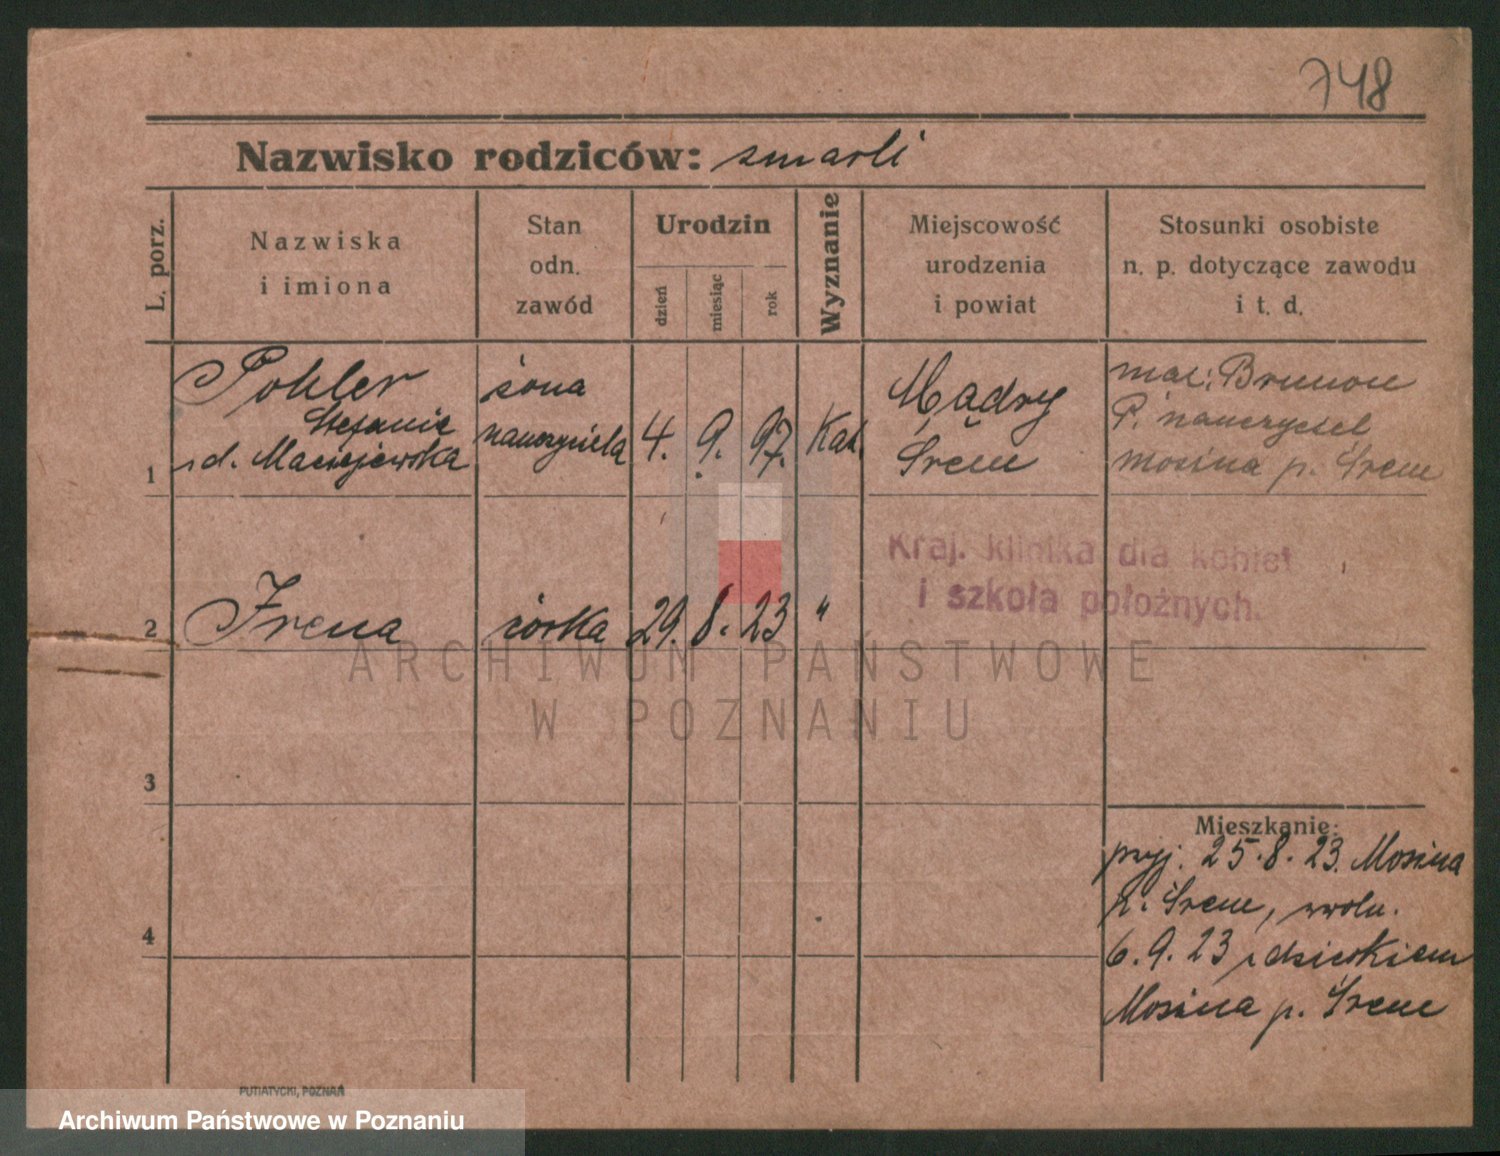 748
Nazwisko rodziców: zmarli
L. porz.
Nazwiska
i imiona
Stan
odn.
zawód
Urodzin
dzień
miesiąc
rok
Wyznanie
Miejscowość
urodzenia
i powiat
Stosunki osobiste
n. p. dotyczące zawodu
i t. d.
1
Pohler
Stefanie
z d. Maciejewska
żona
nauczyciela
4. 9. 97.
Kat.
Mądry
Śrem
mał: Brunon
P. nauczyciel
Mosina p. Śrem
Kraj. klinika dla kobiet
i szkoła położnych.
2
Irena
córka
29. 8. 23
"
ARCHIWUM PAŃSTWOWE
W POZNANIU
3
4
Mieszkanie:
przyj. 25.8.23. Mosina
p. Śrem, zwoln.
6.9.23 z dzieckiem
Mosina p. Śrem
PUTIATYCKI, POZNAŃ
Archiwum Państwowe w Poznaniu